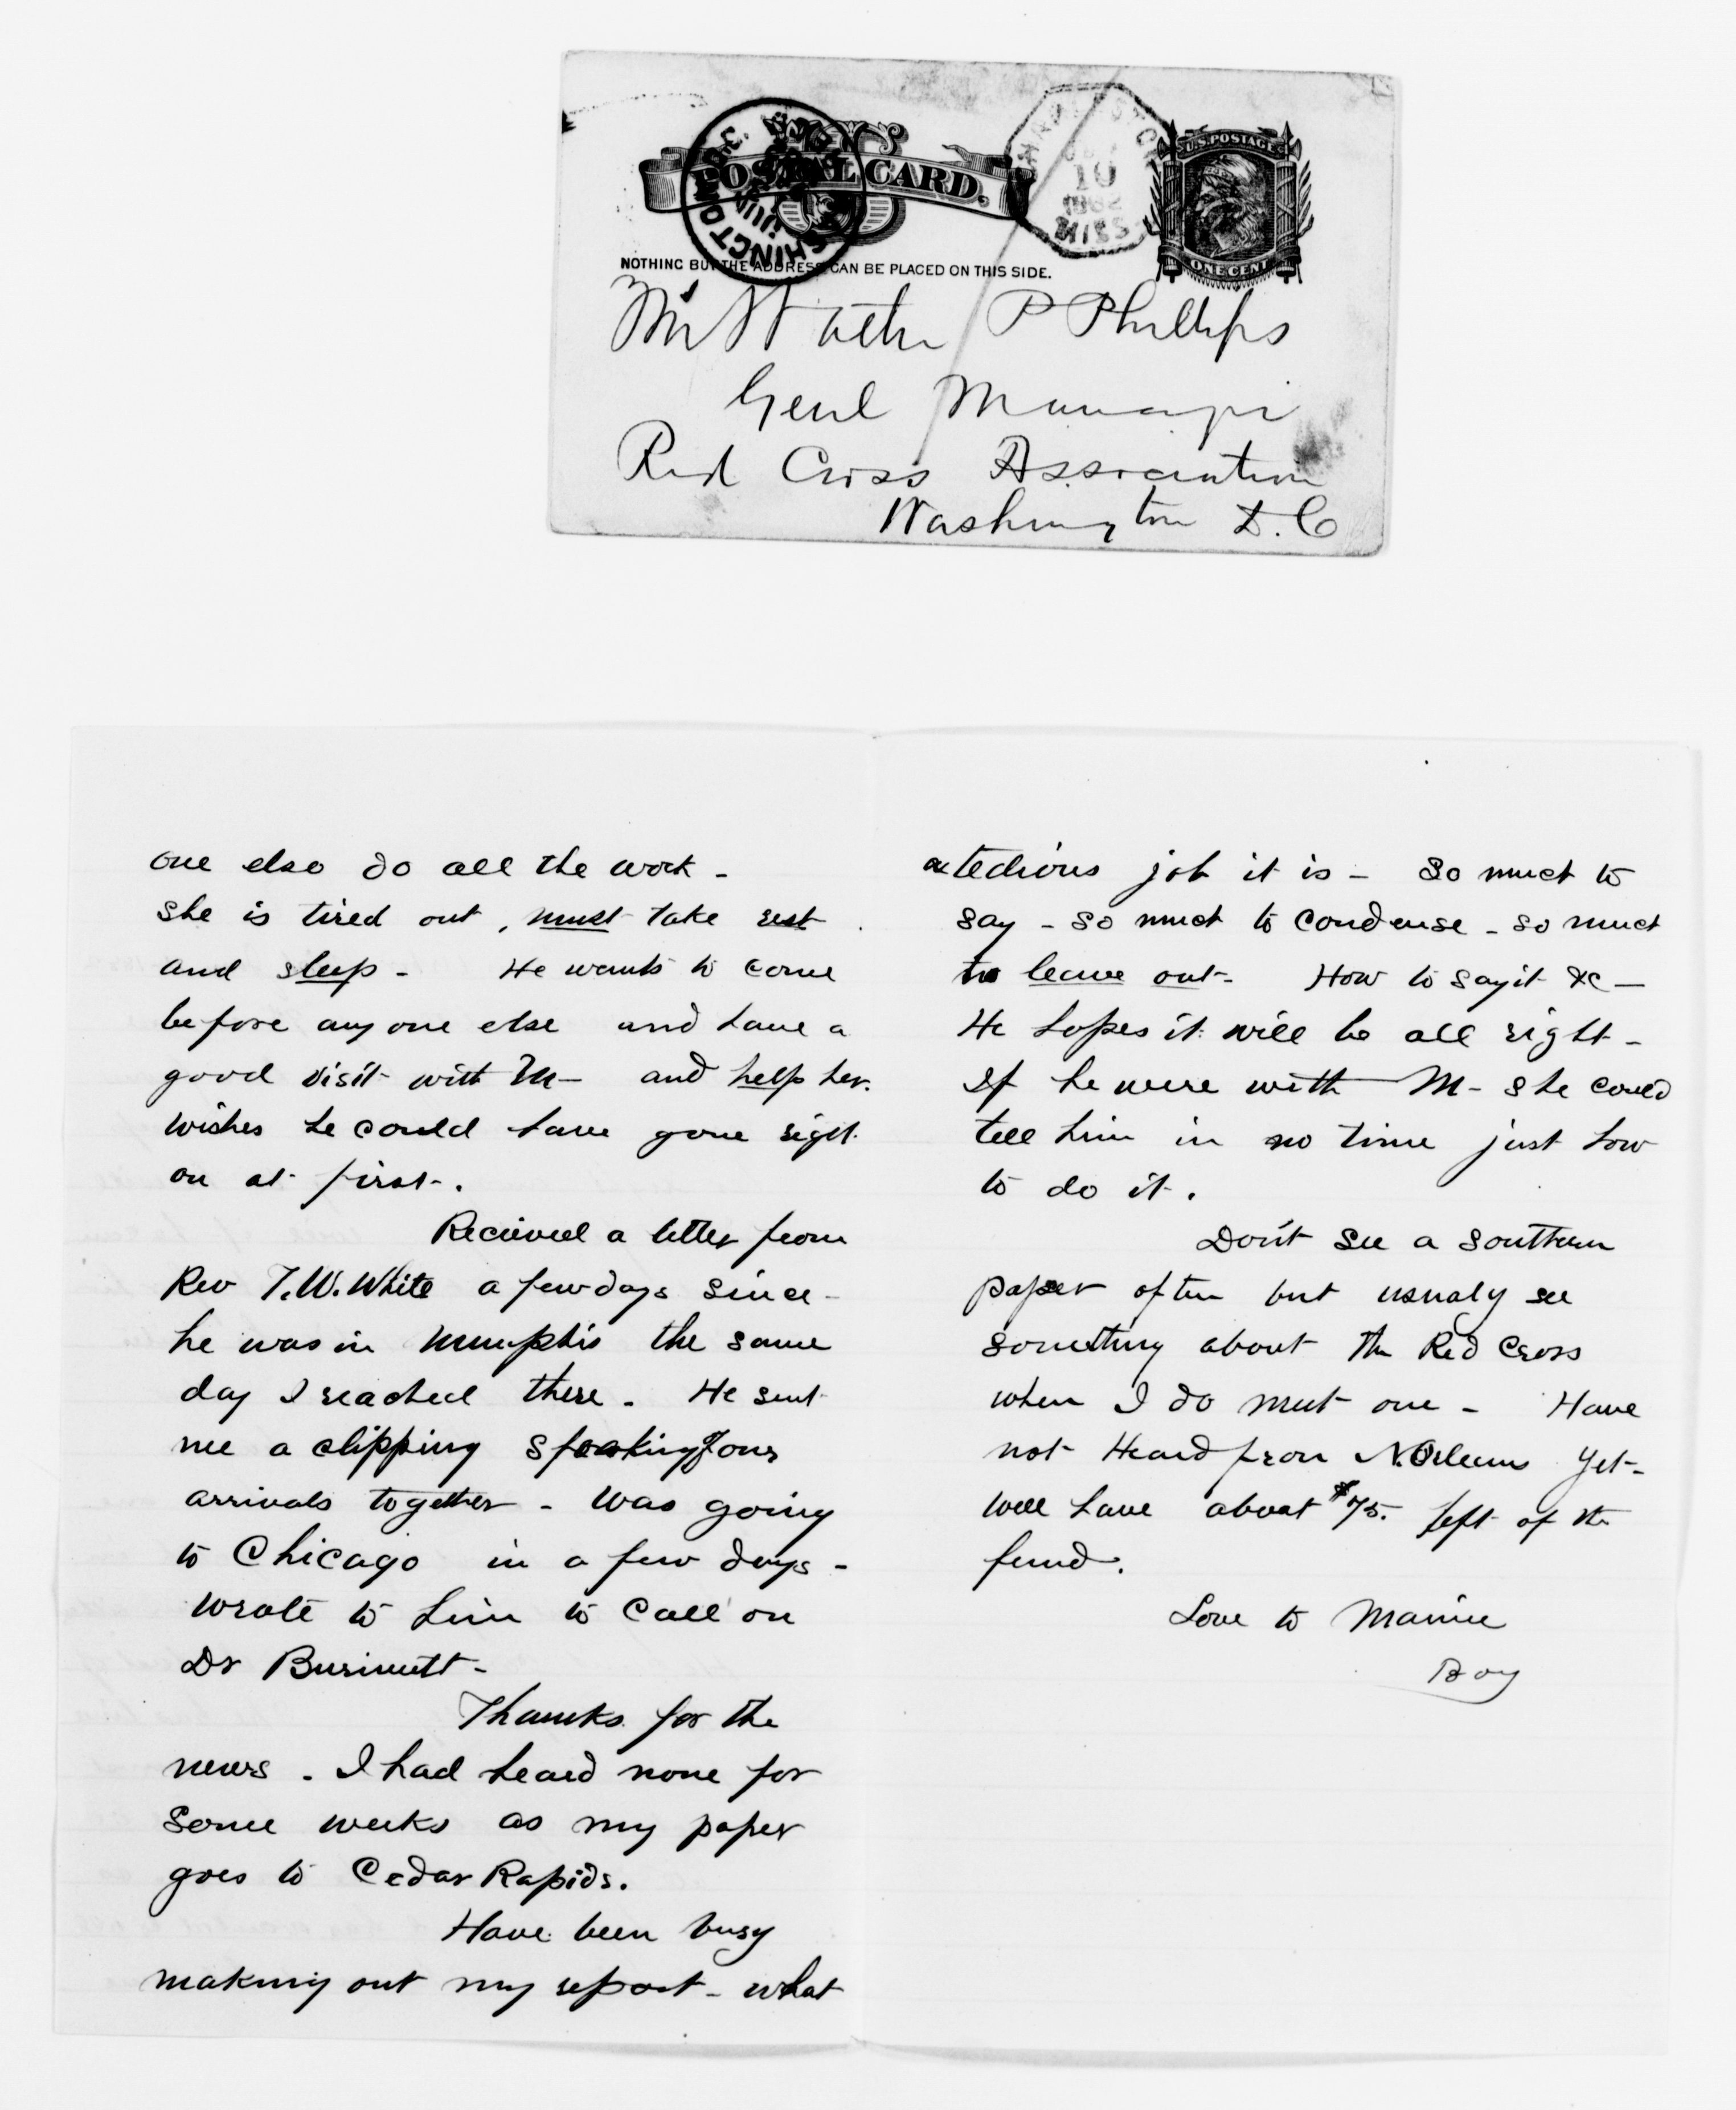 POSTAL CARD.
U.S. POSTAGE
ONE CENT
10
MISS
NOTHING BUT THE ADDRESS CAN BE PLACED ON THIS SIDE.
Mr Walter P Phillips
Genl Manager
Red Cross Association
Washington D.C
one else do all the work -
she is tired out, must take rest
and sleep - He wants to come
before any one else and have a
good visit with M - and help her.
Wishes he could have gone right
on at first.
Recieved a letter from
Rev T.W. White a few days since -
he was in Memphis the same
day I reached there - He sent
me a clipping speaking of our
arrivals together - Was going
to Chicago in a few days -
wrote to him to call on
Dr
Thanks for the
news - I had heard none for
some weeks as my paper
goes to Cedar Rapids.
Have been busy
making out my report - what
a tedious job it is - So much to
say - so much to condense - so much
to leave out - How to say it &c -
He hopes it will be all right -
If he were with M - she could
tell him in no time just how
to do it.
Don't see a Southern
paper often but usualy see
something about the Red Cross
when I do meet one - Have
not Heard from N. Orleans yet -
will have about $75. left of the
fund.
Love to Mamie
Boy